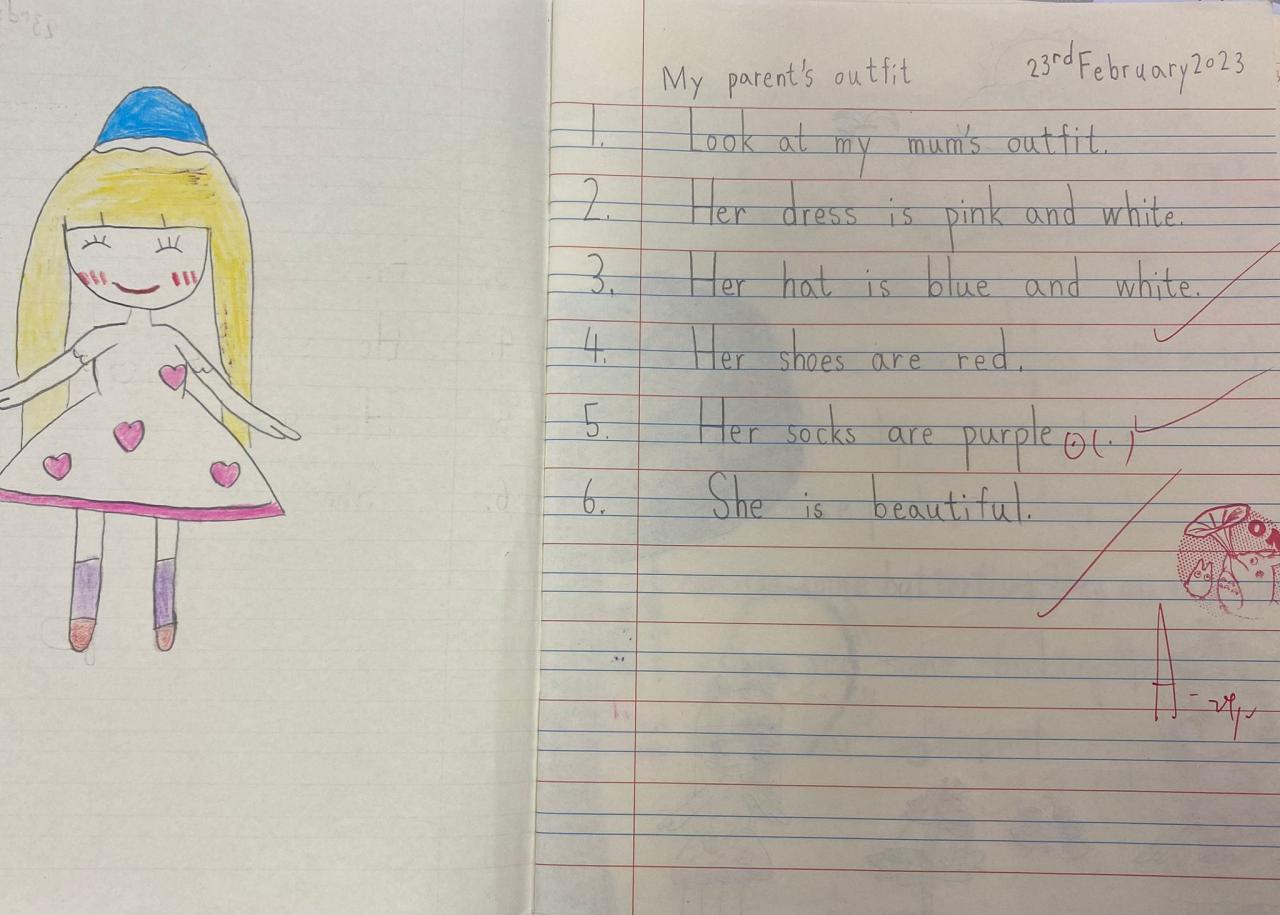 My parent's outfit 23rd February 2023
1. Look at my mum's outfit.
2. Her dress is pink and white.
3. Her hat is blue and white.
4. Her shoes are red.
5. Her socks are purple ⊙(·)
6. She is beautiful.
A-